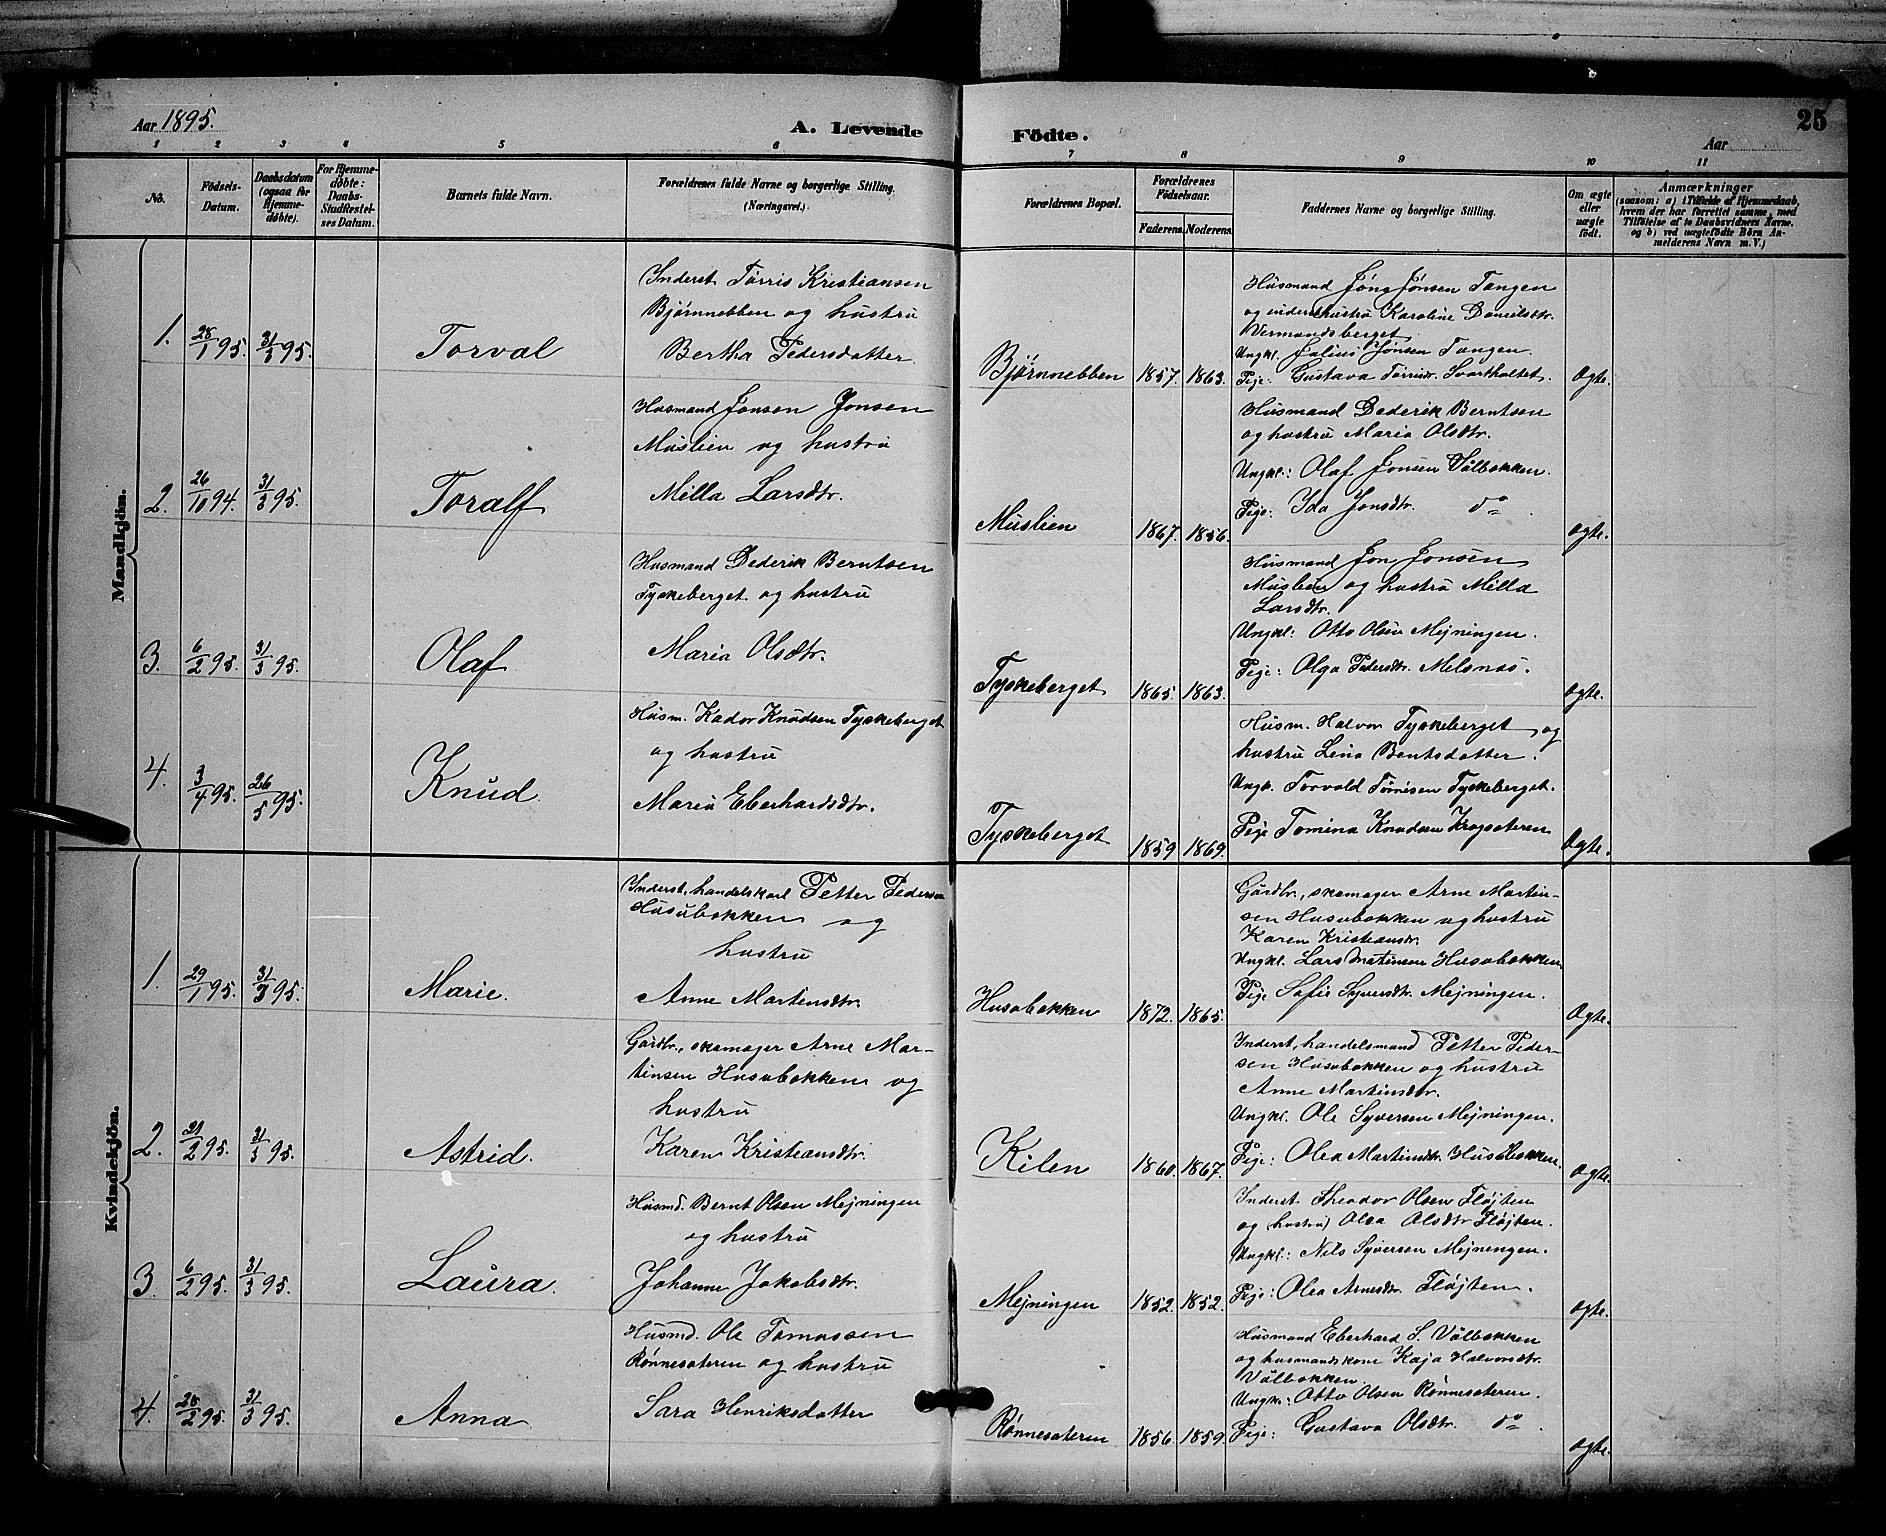 Aar 1895.
A. Levende Födte.
Aar
25
1 2 3 4 5 6 7 8 9 10 11
No.
Födsels-Datum.
Daabsdatum (ogsaa for Hjemmedöbte).
For Hjemmedöbte: Daabs-Stadfæstelses Datum.
Barnets fulde Navn.
Forældrenes fulde Navne og borgerlige Stilling. (Næringsvei.)
Forældrenes Bopæl.
Forældrenes Födselsaar.
Faderens. Moderens.
Faddernes Navne og borgerlige Stilling.
Om ægte eller uægte födt.
Anmærkninger
(saasom: a) i Tilfælde af Hjemmedaab, hvem der har forrettet samme, med Tilföielse af to Daabsvidners Navne. og b) ved uægtefödte Börn Anmelderens Navn m. V.)
Mandkjön.
1. 28/1 95. 31/3 95. Torval
Inderst Törris Kristiansen
Bjørnnebben og hustru
Bertha Pedersdatter
Bjørnnebben 1857. 1863.
Husmand Jøns Jönsen Tangen
og inderst hustru Karoline Danielsdtr.
Vermundsberget
Ungkl. Julius Jønsen Tangen.
Pige: Gustava Törrisdr. Svartholtet.
Ogte.
2. 26/10 94. 31/3 95. Toralf
Husmand Jonsen Jonsen
Muslien og hustru
Milla Larsdtr.
Muslien 1867. 1856.
Husmand Dederik Berntsen
og hustru Maria Olsdtr.
Ungkl: Olaf Jonsen Vålbakken.
Pige: Ida Jonsdtr. do
Ogte.
3. 6/2 95. 31/3 95. Olaf
Husmand Dederik Berntsen
Tyskeberget og hustru
Maria Olsdtr.
Tyskeberget 1865. 1863.
Husmand Jon Jonsen
Muslien og hustru Milla
Larsdtr.
Ungkl: Otto Olsen Mejningen.
Pige: Olga Pedersdtr. Melsnes.
Ogte.
4. 3/4 95. 26/5 95. Knud.
Husm. Kador Knudsen Tyskeberget
og hustru
Maria Eberhardsdtr.
Tyskeberget 1859 1869.
Husm. Halvor Tyskeberget og
hustru Lina Bentsdatter.
Ungk. Torvald Tømisen Tyskeberget.
Pige Tomina Knudsen Krogsæteren
Ogte.
Kvindekjön.
1. 29/1 95. 31/3 95. Marie.
Inderst, handelskarl Petter Pedersen
Husubakken og
hustru
Anne Martinsdtr.
Husubakken 1872. 1865.
Gårdbr., skomager Arne Martin-
sen Husubakken og hustru
Karen Kristiansdtr.
Ungkl. Lars Matinsen Husubakken.
Pige Sofie Syversdtr. Mejningen.
Ogte.
2. 21/2 95. 31/3 95. Astrid.
Gårdbr., skomager Arne Mar-
tinsen Husubakken og
hustru
Karen Kristiansdtr.
Kilen 1860. 1867.
Inderst, handelsmand Petter Peder-
sen Husubakken og hustru
Anne Martinsdtr.
Ungkl. Ole Syversen Mejningen.
Pige: Olea Martinsdtr. Husubakken.
Ogte.
3. 6/2 95. 31/3 95. Laura.
Husmd. Bernt Olsen Mejningen
og hustru
Johanne Jakobsdtr.
Mejningen 1852. 1852.
Inderst Theodor Olsen Fløjten
og hustru Olea Olsdtr Fløjten.
Ungkl: Nils Syversen Mejningen.
Pige: Olea Arnesdtr Fløjten.
Ogte.
4. 28/2 95. 31/3 95. Anna
Husmd. Ole Tomassen
Rønnesæteren og hustru
Sara Henriksdatter
Rønnesæteren 1856. 1859.
Husmand Eberhard S. Vålbakken
og husmandskone Kaja Halvorsdtr.
Vålbakken.
Ungk: Otto Olsen Rønnesæteren.
Pige: Gustava Olsdtr. do.
Ogte.